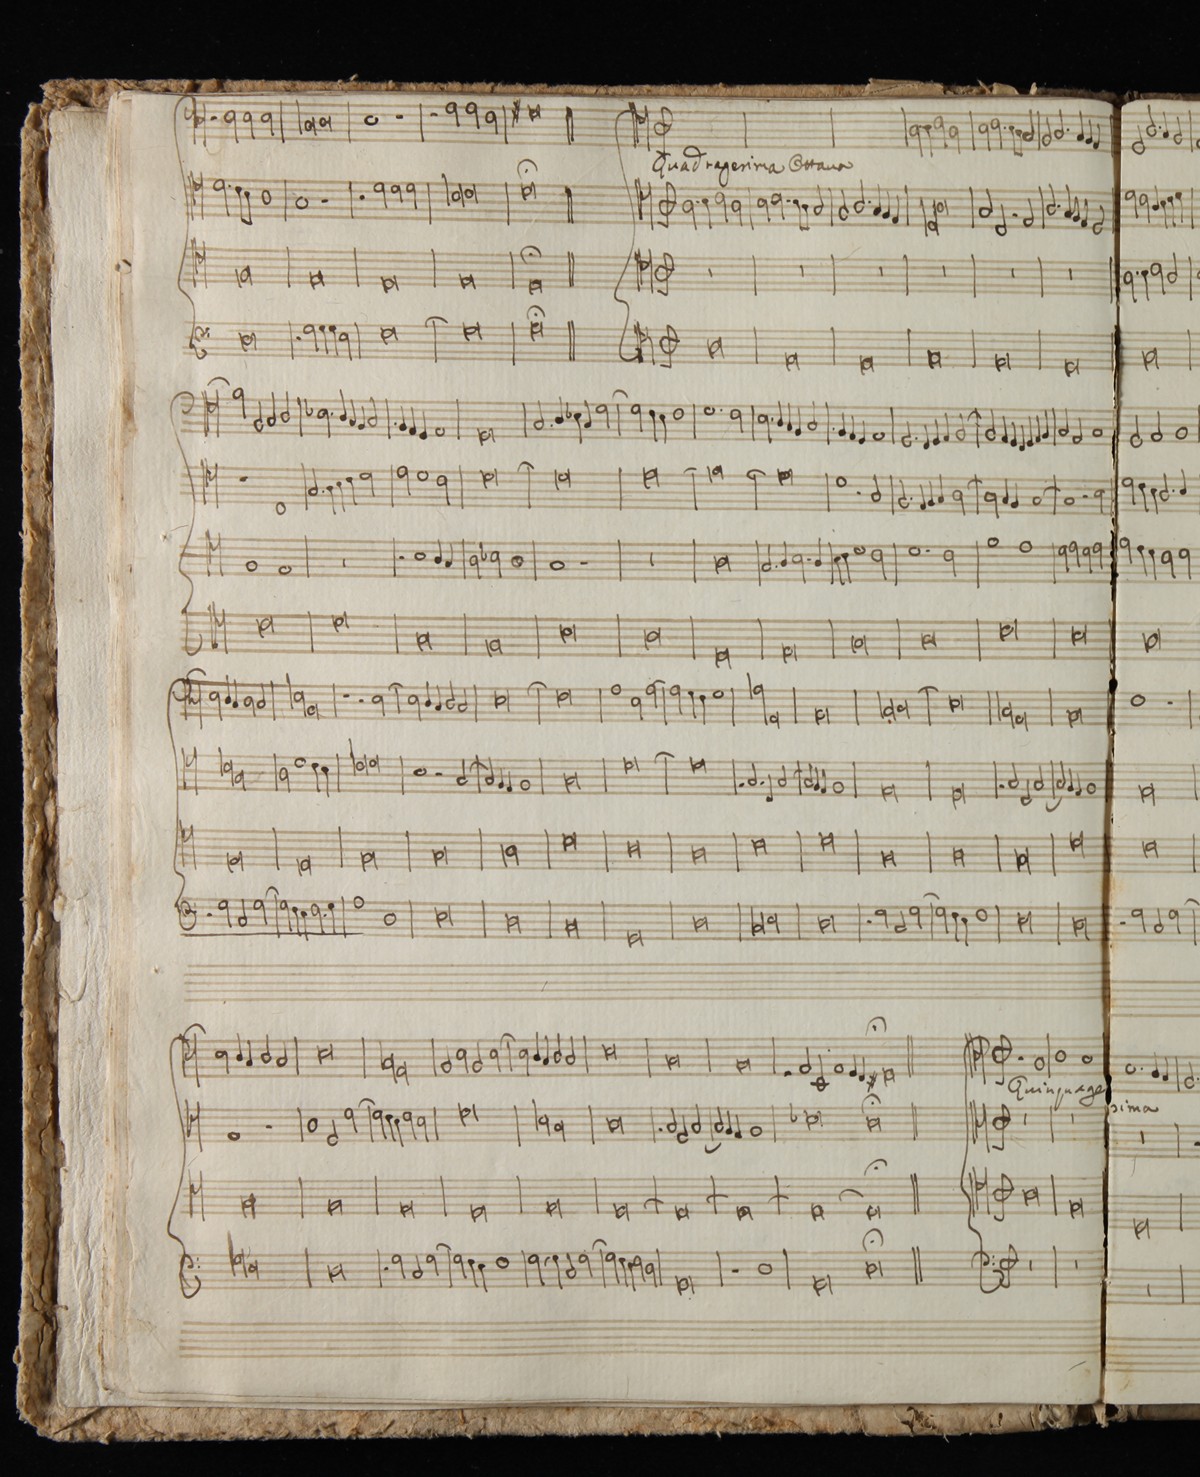 Quadragesima Ottava
Quinquagesima